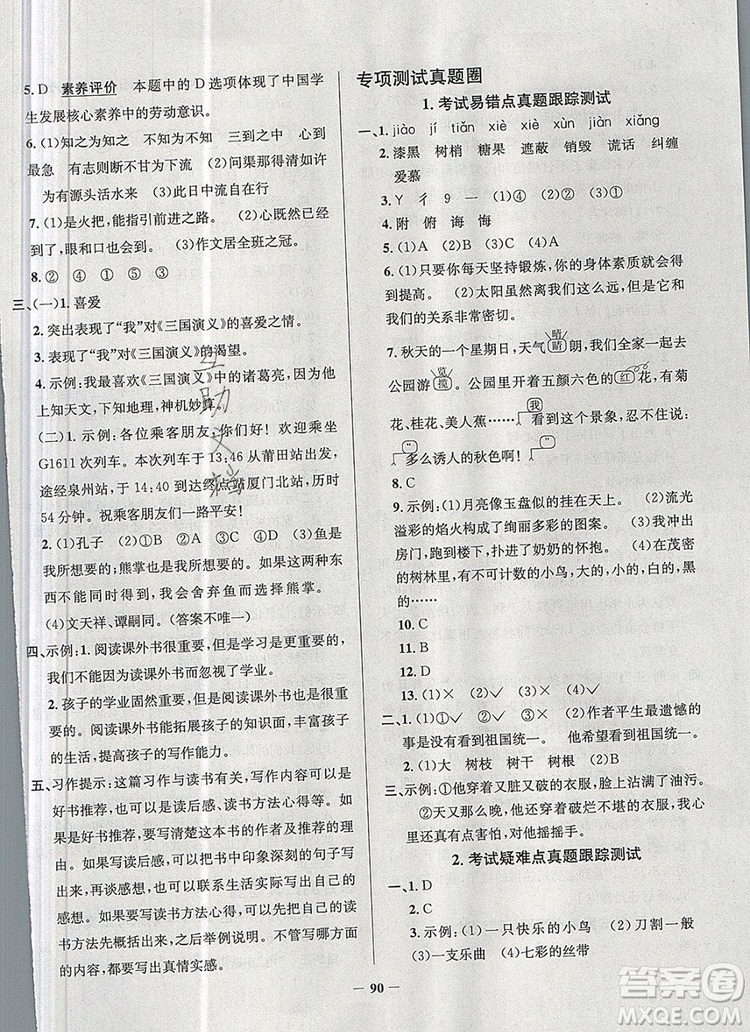 5. D 素养评价 本题中的 D 选项体现了中国学
生发展核心素养中的劳动意识。
6. (1)知之为知之 不知为不知 (2)心到
最急 有志则断不甘下流 (2)问渠那得清如许
为有源头活水来 (3)此日中流自在行
7. (1)是火把,能指引前进之路。 (2)心既然已经
到了,眼和口也会到。 (3)作文居全班之冠。
8. ② ④ ① ⑤ ③
三、(一)1. 喜爱
2. 突出表现了“我”对《三国演义》的喜爱之情。
3. 表现了“我”对《三国演义》的渴望。
4. 示例:我最喜欢《三国演义》中的诸葛亮,他
上知天文,下知地理,神机妙算。
(二)1. 示例:各位乘客朋友,你们好! 欢迎乘坐
G1611 次列车。本次列车于 13:46 从莆田站出发,
途经泉州站,于 14:40 到达终点站厦门北站,历时
54 分钟。祝乘客朋友们一路平安!
2. (1)孔子 (2)①②④ ③⑤ (3)鱼是
我所想要的,熊掌也是我所想要的,如果这两种东
西不能同时得到,我就会舍弃鱼而选择熊掌。
(4)文天祥、谭嗣同。(答案不唯一)
四、示例:1. 阅读课外书很重要,但是学习是更重要的,
我们不能因为读课外书而忽视了学业。
2. 孩子的学业固然重要,但阅读课外书也很
重要。阅读课外书能拓展孩子的知识面,丰富孩子
的生活,提高孩子的写作能力。
五、习作提示:这篇习作与读书有关,写作内容可以是
好书推荐、写读后感、读书方法心得等。如
果是好书推荐,要写清楚这本书的作者及推荐的理
由;如果是写读后感,可以把书中印象深刻的句子写
出来,再谈感想,也可以联系生活实际写出自己的
感想;如果是写读书方法心得,可以先写自己的读
书方法再概括出方法的好处。不管写哪方面的内
容,都要写出真情实感。
专项测试真题圈
1. 考试易错点真题跟踪测试
一、1. jiào jí tiǎn xiè xùn jiàn xiǎng
2. 漆黑 树梢 糖果 遮蔽 销毁 谎话 纠缠
爱慕
3. Y 彳 9 一 (1)① (2)② (3)①
4. 附 俯 诲 悔
5. (1)A (2)B (3)C (4)A
6. (1)只要你每天坚持锻炼,你的身体素质就会得
到提高。 (2)太阳虽然离我们这么远,但是它和
我们的关系非常密切。
7. 秋天的一个星期日,天气晴朗,我们来到
公园游览。公园里开着五颜六色的红花,有菊
花、桂花、美人蕉……我看到这个景象,忍不住说:
“多么诱人的秋色啊!”
8. C
9. 示例:(1)月亮像玉盘似的挂在天上。 (2)流光
溢彩的焰火构成了绚丽多彩的图案。 (3)我冲出
房门,跑到楼下,扑进了奶奶的怀抱。 (4)在茂密
的树林里,有不可计数的小鸟,大的,小的,花的,
黑的……
10. C
11. C
12. D
13. (1)× (2)√ (3)√ (4)×
二、1. (1)① ✓ ②✓ ③✓ (2)作者平生最遗憾的
事是没有看到祖国统一。 (3)希望看到祖国统一。
2. (1)大 树枝 树干 树根 (2)B
三、示例:①他穿着又脏又破的衣服,脸上沾满了油污。
②天又那么晚,他穿着破烂不堪的衣服,我心
里还真有点害怕,对他摇摇手。
2. 考试疑难点真题跟踪测试
一、1. D
2. C
3. 示例:(1)一只快乐的小鸟 (2)刀割一般
(3)一支乐曲 (4)七彩的丝带
— 90 —
互助文档
答案圈
MXQE.COM